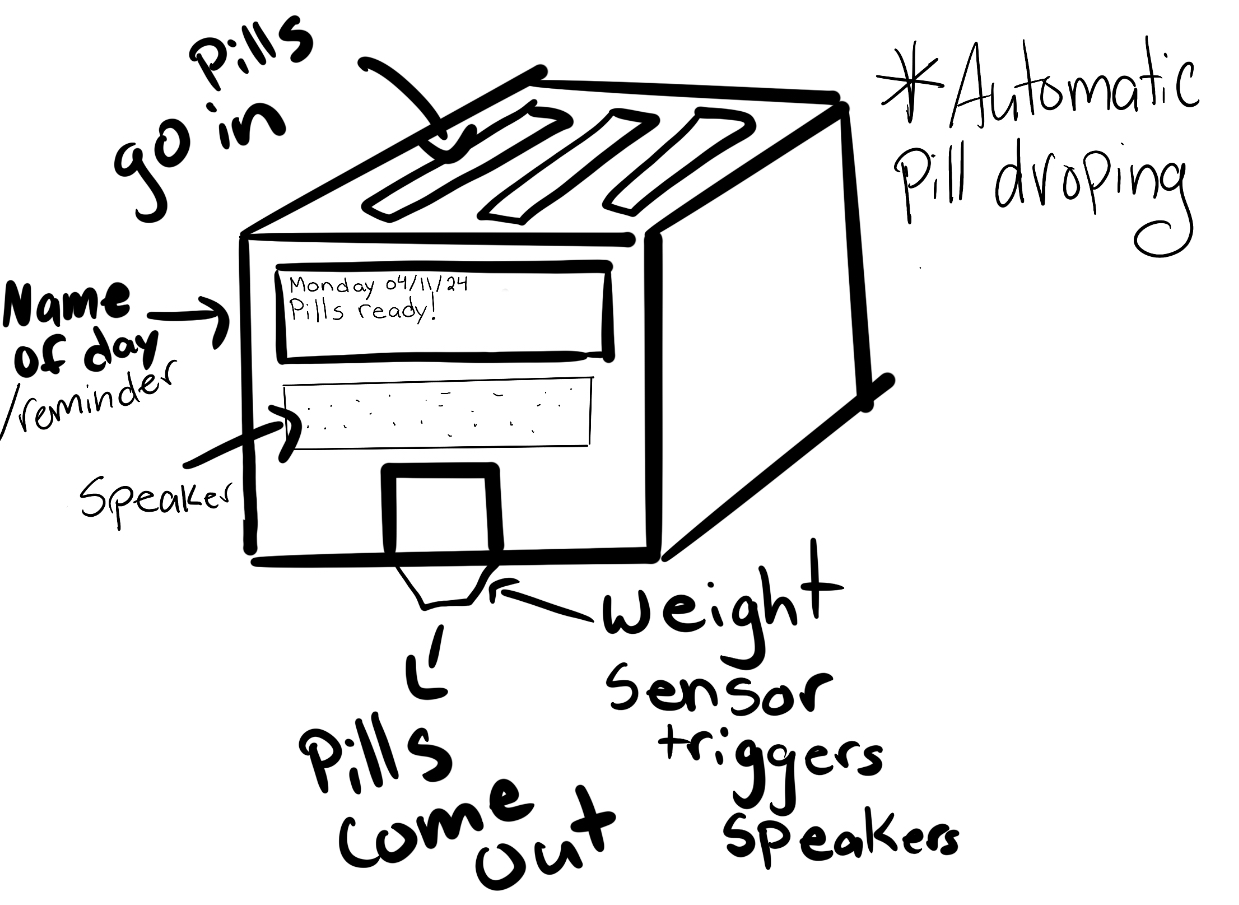 Pills
go in
*Automatic
pill droping
Name
of day
/reminder
Monday 04/11/24
Pills ready!
Speaker
Weight
sensor
triggers
speakers
Pills
come
out